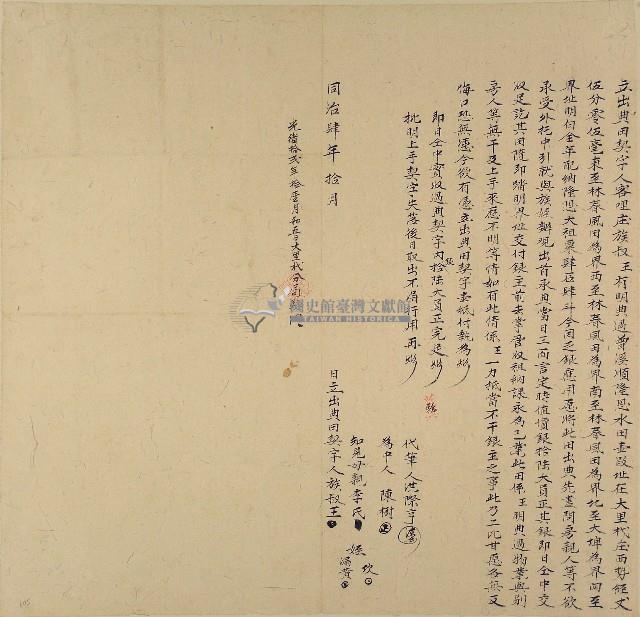 立出典田契字人客哩庄族叔王有明典過曾溪順隆恩水田壹段址在大里杙庄西勢經丈
伍分零伍毫東至林奏風田為界西至林奏風田為界南至林奏風田為界北至大埤為界四至
界址明白全年配納隆恩大租粟肆石肆斗今因乏銀應用愿將此田出典先盡問房親人等不欲
承受外托中引就與族姪 觀出首承典當日三面言定時值價銀拾陸大員正其銀即日仝中交
收足訖其田隨即踏明界址交付銀主前去掌管收租納課永為己業此田係王明典過物業與別
房人等無干及上手來歷不明等情如有此情係王一力抵當不干銀主之事此乃二比甘愿各無反
悔口恐無憑今欲有憑立出典田契字壹紙付執為炤
即日仝中實收過典契字內拾陸大員正完足炤
批明上手契字失落後日取出不屑行用再炤
代筆人洪際亨
為中人陳樹
知見母親李氏
姪
同治肆年拾月 日立出典田契字人族叔王
光緒拾貳年拾壹月初五日大里杙分局
國史館臺灣文獻館
TAIWAN HISTORICA
105